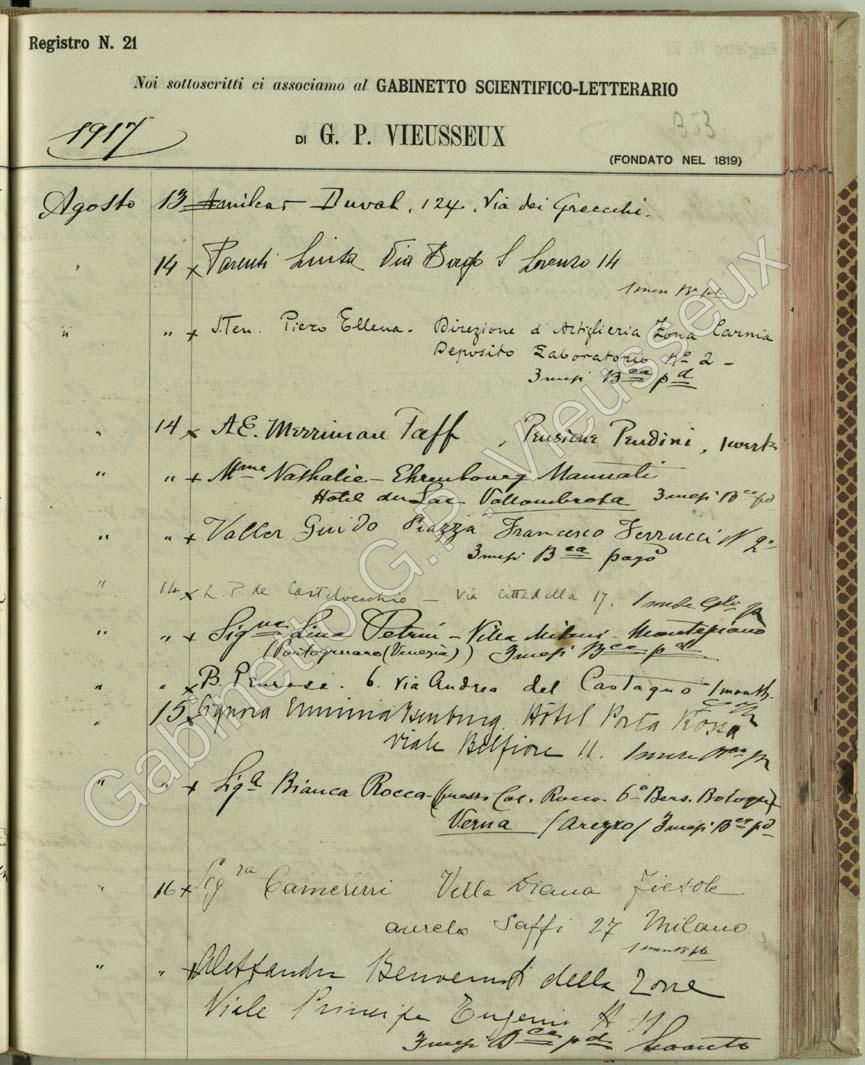 Registro N. 21
Noi sottoscritti ci associamo al GABINETTO SCIENTIFICO-LETTERARIO
1917
DI G. P. VIEUSSEUX
(FONDATO NEL 1819)
Agosto 13 Amilcar Duval, 124, Via dei
14 x Parenti Via Borgo S Lorenzo 14
" " x S.Ten. Piero Ellena - Direzione d'Artiglieria Zona Carnia
Deposito Laboratorio No 2 -
3 mesi Bca pd
" 14 x A E. Merriman Taff, Pensione Pendini, 1 week
" " x Mme Nathalie - Ehrenbourg
Hotel du Lac Vallombrosa 3 mesi Bca pd
" " x Valler Guido Piazza Francesco Ferrucci N 2
3 mesi Bca pago
" 14 x L. P. de Castelvecchio - Via Cittadella 17. 1 mese
" " x Signa Lina Petrni - Villa - Montepiano
(Portogruaro (Venezia)) 3 mesi Bca pd
" " x B. Penrose. 6. Via Andrea del Castagno 1 month
15 x Signora Emmina Isenburg Hôtel Porta Rossa
Viale Belfiore 11. 1 mese
" " x Siga Bianca Rocca - (presso Rocca. 6o Bers. Bologna)
Verna (Arezzo) 3 mesi Bca pd
" 16 x Sigra Villa Diana Fiesole
aurelo Saffi 27 Milano
" " x Alessandra della
Viale Principe Eugenio
3 mesi Bca pd
Gabinetto G.P. Vieusseux